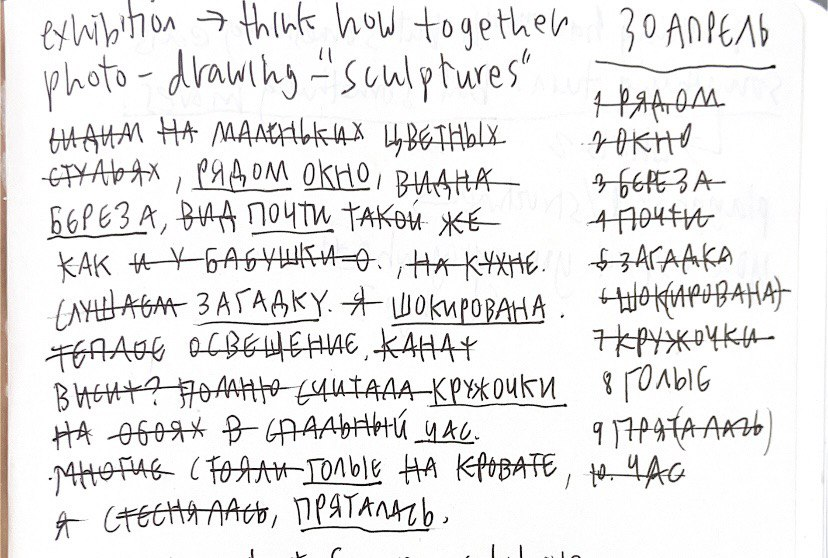 exhibition → think how together
photo - drawing - "sculptures"
СИДИМ НА МАЛЕНЬКИХ ЦВЕТНЫХ
СТУЛЬЯХ, РЯДОМ ОКНО, ВИДНА
БЕРЕЗА, ВИД ПОЧТИ ТАКОЙ ЖЕ
КАК И У БАБУШКИ О., НА КУХНЕ.
СЛУШАЕМ ЗАГАДКУ. Я ШОКИРОВАНА.
ТЕПЛОЕ ОСВЕЩЕНИЕ, КАНАТ
ВИСИТ? ПОМНЮ СЧИТАЛА КРУЖОЧКИ
НА ОБОЯХ В СПАЛЬНЫЙ ЧАС.
МНОГИЕ СТОЯЛИ ГОЛЫЕ НА КРОВАТЕ,
Я СТЕСНЯЛАСЬ, ПРЯТАЛАСЬ.
30 АПРЕЛЬ
1 РЯДОМ
2 ОКНО
3 БЕРЕЗА
4 ПОЧТИ
5 ЗАГАДКА
6 ШОК(ИРОВАНА)
7 КРУЖОЧКИ
8 ГОЛЫЕ
9 ПРЯТ(АЛАСЬ)
10. ЧАС